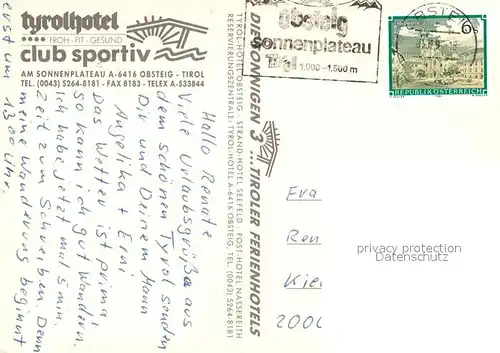 tyrolhotel
FROH · FIT · GESUND
club sportiv
AM SONNENPLATEAU A-6416 OBSTEIG - TIROL
TEL. (0043) 5264-8181 - FAX 8183 - TELEX A-533844
Hallo Renate
Viele Urlaubsgrüße aus
dem schönen Tyrol senden
Dir und Deinem Mann
Angelika + Erni
Das Wetter ist prima,
so kann ich gut Wandern.
Ich habe jetzt mal 5 min.
Zeit zum Schreiben. Denn
meine Wanderung beginnt
erst um 13.00 Uhr.
TYROL-HOTEL OBSTEIG - STRAND-HOTEL SEEFELD - POST-HOTEL NASSEREITH
RESERVIERUNGSZENTRALE: TYROL-HOTEL A-6416 OBSTEIG, TEL. (0043) 5264-8181
DIE SONNIGEN 3 ... TIROLER FERIENHOTELS
obsteig
Sonnenplateau
Tirol 1.000-1.500 m
OBSTEIG
6 S
REPUBLIK ÖSTERREICH
Fra
Ren
Kie
2000
privacy protection
Datenschutz